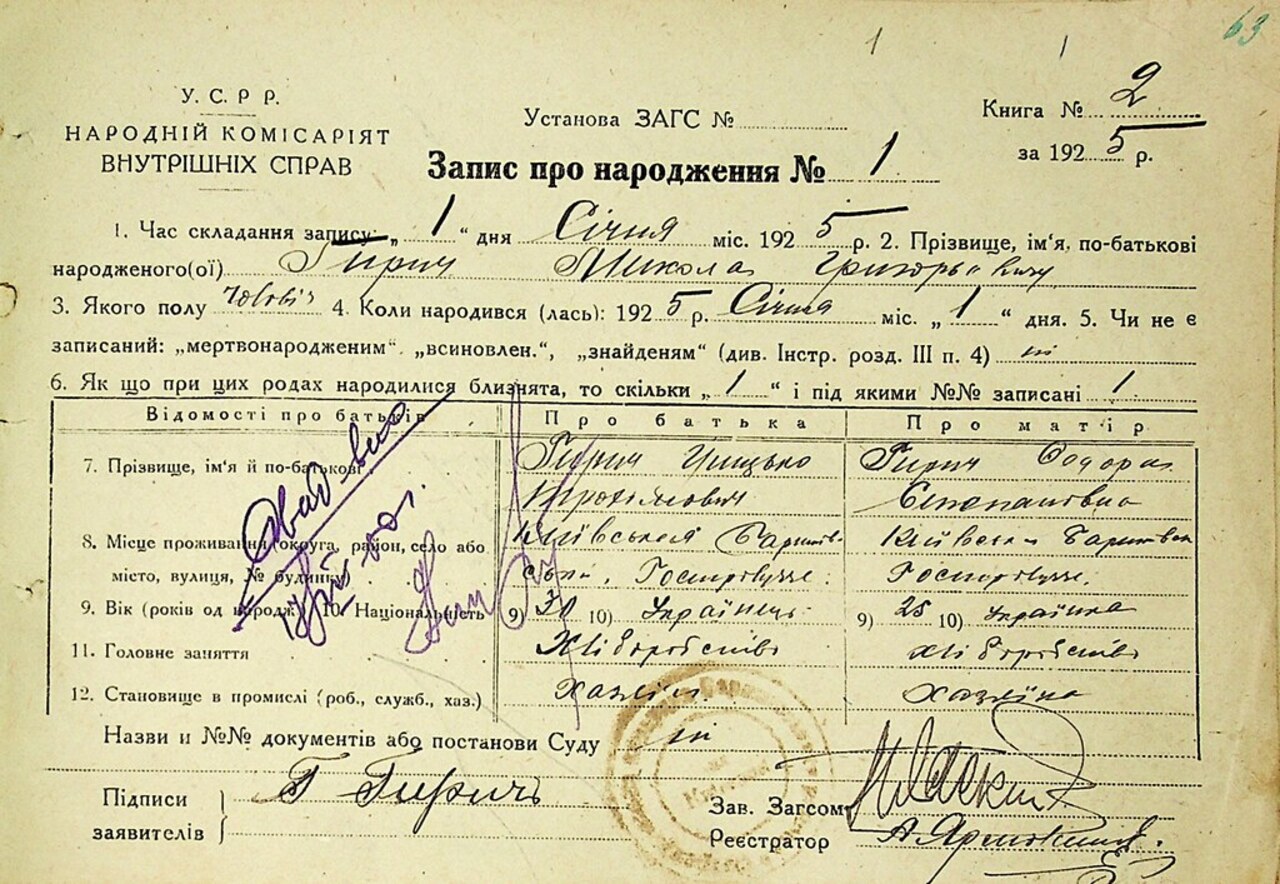 63
1 1
У. С. Р Р.
НАРОДНІЙ КОМІСАРІЯТ
ВНУТРІШНІХ СПРАВ
Установа ЗАГС №
Книга № 2
за 1925 р.
Запис про народження № 1
1. Час складання запису: „ 1 “ дня Січня міс. 1925 р. 2. Прізвище, ім'я, по-батькові
народженого(ої) Гирич Микола Григорьевичу
3. Якого полу чоловіч 4. Коли народився (лась): 1925 р. Січня міс. „ 1 “ дня. 5. Чи не є
записаний: „мертвонародженим“. „всиновлен.“, „знайденям“ (див. Інстр. розд. III п. 4) ні
6. Як що при цих родах народилися близнята, то скільки „ 1 “ і під якими №№ записані 1
Відомості про батьків Про батька Про матір
7. Прізвище, ім'я й по-батькові Гирич Грицько Гирич Тодора
Трохимович Степановна
8. Місце проживання (округа, район, село або Київський Баришів- Київськи Баришівськ
місто, вулиця, № будинку) ський, Гостролуччє. Гостролуччє.
9. Вік (років од народж.) 10. Національність 9) 30 10) Українець 9) 25 10) Українка
11. Головне заняття Хліборобство хліборобство
12. Становище в промислі (роб., служб., хаз.) Хазяїн. Хазяїна
Назви и №№ документів або постанови Суду ні
Підписи
заявителів
Г Гиричь
Зав. Загсом
Реєстратор